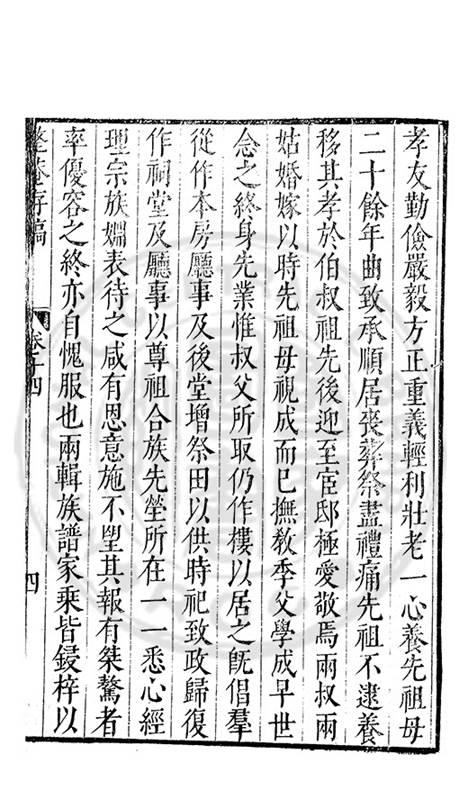 孝友勤儉嚴毅方正重義輕利壯老一心養先祖母
二十餘年曲致承順居喪葬祭盡禮痛先祖不逮養
移其孝於伯叔祖先後迎至宦邸極愛敬焉兩叔兩
姑婚嫁以時先祖母視成而已撫敎季父學成早世
念之終身先業惟叔父所取仍作樓以居之旣倡羣
從作本房廳事及後堂增祭田以供時祀致政歸復
作祠堂及廳事以尊祖合族先塋所在一一悉心經
理宗族婣表待之咸有恩意施不望其報有桀驁者
率優容之終亦自愧服也兩輯族譜家乘皆鋟梓以
整菴存稿
卷十四
四